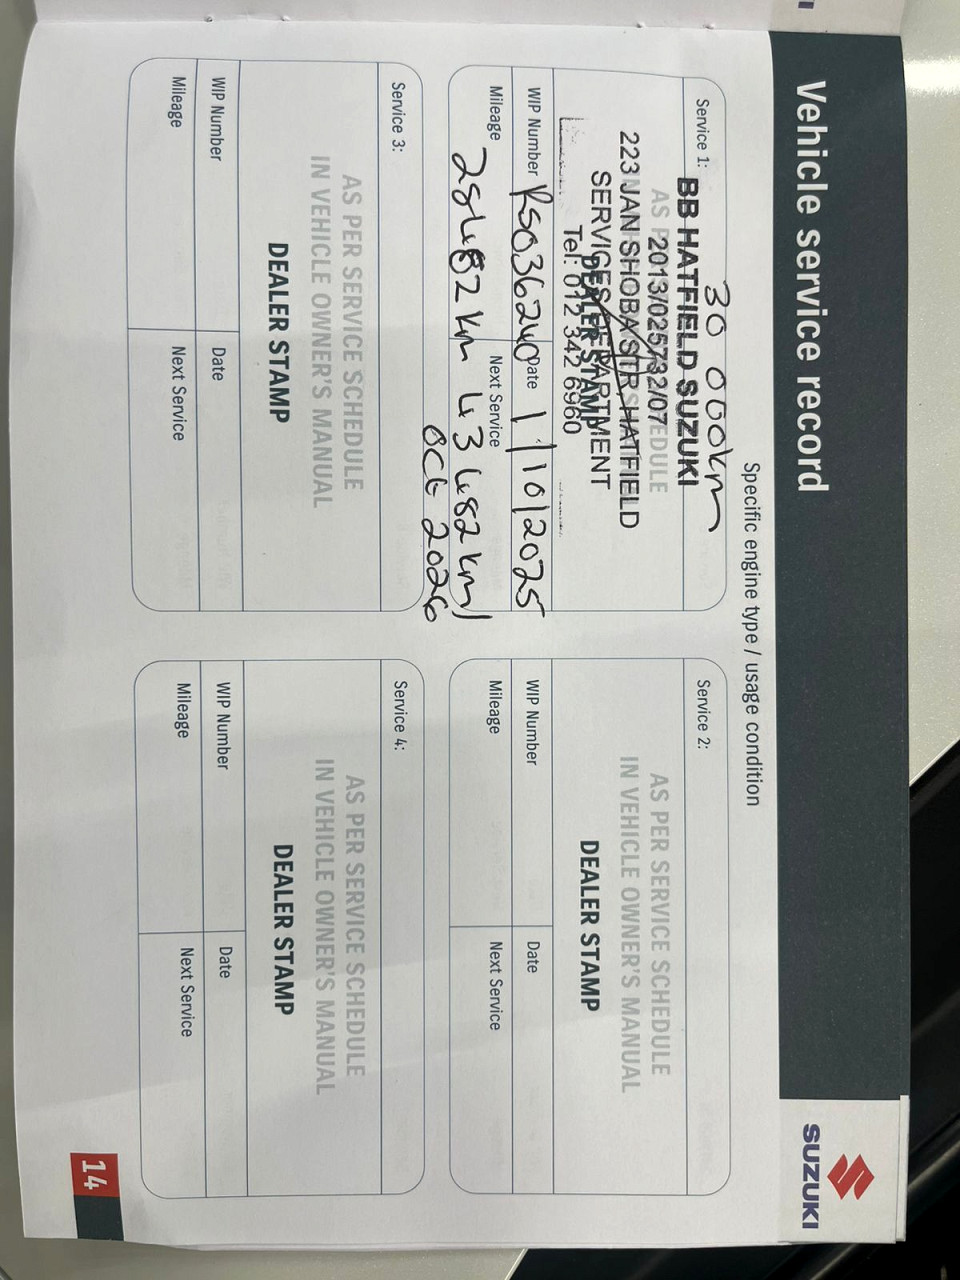 Vehicle service record
SUZUKI
Specific engine type / usage condition
Service 1: 30 000km
BB HATFIELD SUZUKI
2013/025732/07
223 JAN SHOBA STR, HATFIELD
SERVICES DEPARTMENT
Tel: 012 342 6960
AS PER SERVICE SCHEDULE
DEALER STAMP
WIP Number RS036240 Date 1/10/2025
Mileage 28482 km Next Service 43482 km/
Oct 2026
Service 2:
AS PER SERVICE SCHEDULE
IN VEHICLE OWNER'S MANUAL
DEALER STAMP
WIP Number Date
Mileage Next Service
Service 3:
AS PER SERVICE SCHEDULE
IN VEHICLE OWNER'S MANUAL
DEALER STAMP
WIP Number Date
Mileage Next Service
Service 4:
AS PER SERVICE SCHEDULE
IN VEHICLE OWNER'S MANUAL
DEALER STAMP
WIP Number Date
Mileage Next Service
14